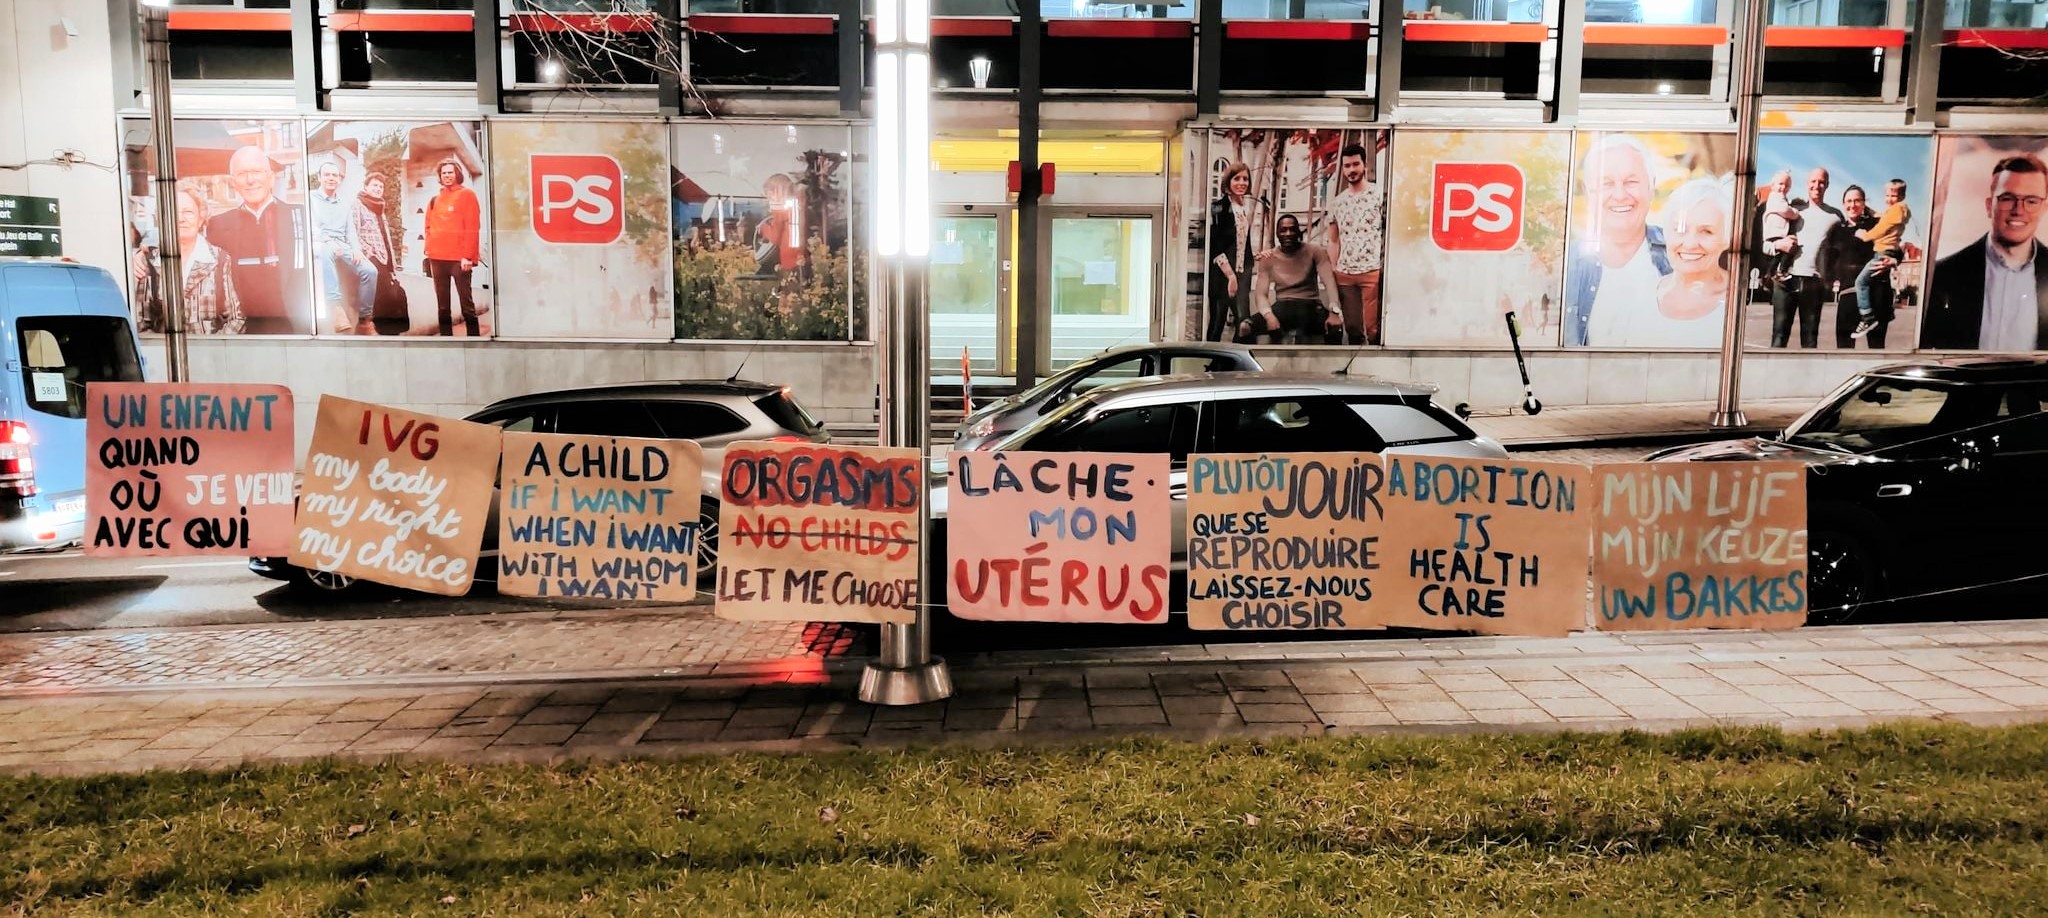 PS
PS
UN ENFANT
QUAND
OÙ JE VEUX
AVEC QUI
IVG
my body
my right
my choice
A CHILD
iF i WANT
WHEN i WANT
WiTH WHOM
I WANT
ORGASMS
NO CHiLDS
LET ME CHOOSE
LÂCHE.
MON
UTÉRUS
PLUTÔT JOUIR
QUE SE
REPRODUiRE
LAiSSEZ-NOUS
CHOISIR
ABORTION
IS
HEALTH
CARE
MiJN LiJF
MiJN KEUZE
UW BAKKES
5803